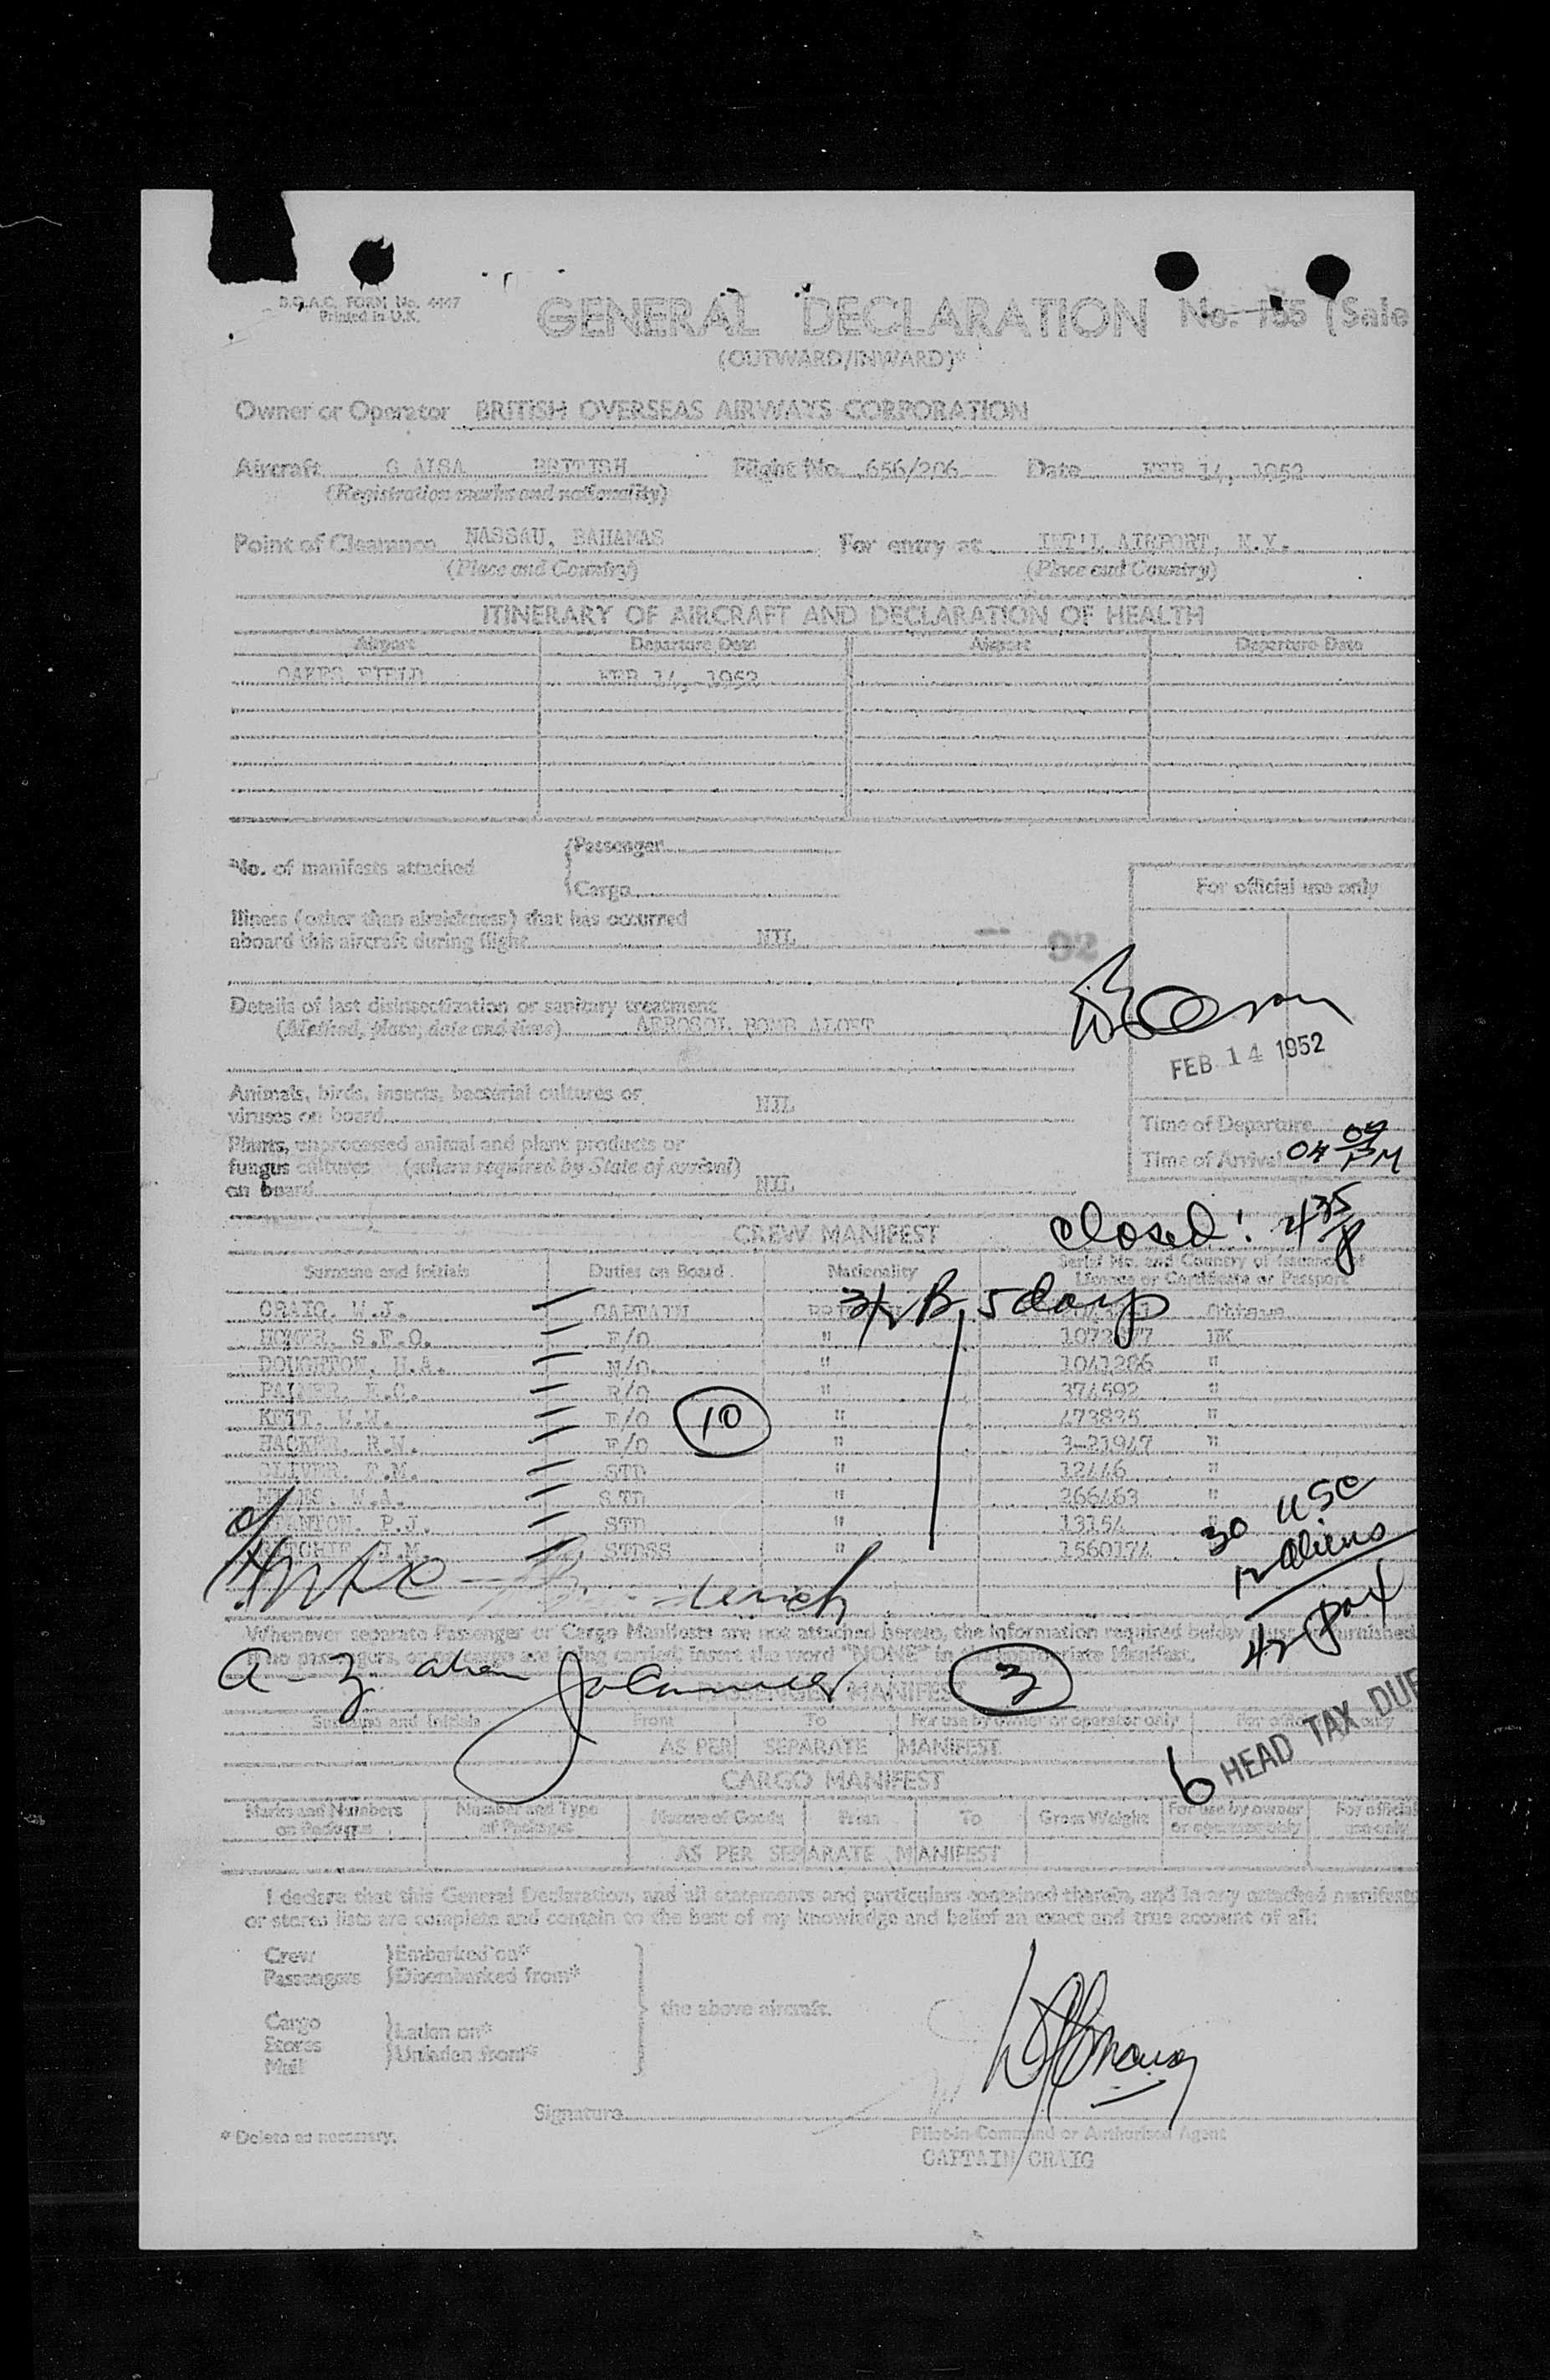 B.O.A.C. FORM No. 4447
Printed in U.K.
GENERAL DECLARATION No. 155 (Sale
(OUTWARD/INWARD)*
Owner or Operator BRITISH OVERSEAS AIRWAYS CORPORATION
Aircraft G ALSA BRITISH Flight No. 656/206 Date FEB 14, 1952
(Registration marks and nationality)
Point of Clearance NASSAU, BAHAMAS For entry at INT'L AIRPORT, N.Y.
(Place and Country) (Place and Country)
ITINERARY OF AIRCRAFT AND DECLARATION OF HEALTH
Airport Departure Date Airport Departure Date
OAKES FIELD FEB 14, 1952
No. of manifests attached
Passenger
Cargo
For official use only
Illness (other than airsickness) that has occurred
aboard this aircraft during flight NIL
92
Details of last disinsectization or sanitary treatment
(Method, place, date and time) AEROSOL BOMB ALOFT
FEB 14 1952
Animals, birds, insects, bacterial cultures or
viruses on board NIL
Time of Departure
Plants, unprocessed animal and plant products or
fungus cultures (where required by State of arrival)
on board NIL
Time of Arrival 04 09 PM
closed! 4 35 P
CREW MANIFEST
Surname and Initials Duties on Board Nationality Serial No. and Country of Issuance of
Licence or Certificate or Passport
3/2 B, 5 days
CRAIG, W.J. CAPTAIN BRITISH Ottawa
HOMER, S.F.O. F/O " UK
DOUGHTON, H.A. N/O " 1041286 "
PALMER, E.C. R/O " 374592 "
KETT, W.W. E/O " 473825 "
HACKER, R.W. E/O " 3-21947 "
OLIVER, F.M. STD " 12446 "
W.A. STD " 266463 "
STANTON, P.J. STD " 13154 "
RITCHIE, J.M. STDSS " 1560174
10
30 USC
12 aliens
42 pax
Whenever separate Passenger or Cargo Manifests are not attached hereto, the information required below must be furnished.
If no passengers, or no cargo are being carried, insert the word "NONE" in the appropriate Manifest.
a - z alien
3
PASSENGER MANIFEST
Surname and Initials From To For use by owner or operator only For official use only
AS PER SEPARATE MANIFEST
6 HEAD TAX DUE
CARGO MANIFEST
Marks and Numbers
on Packages
Number and Type
of Packages
Nature of Goods From To Gross Weight
For use by owner
or operator only
For official
use only
AS PER SEPARATE MANIFEST
I declare that this General Declaration, and all statements and particulars contained therein, and in any attached manifests
or stores lists are complete and contain to the best of my knowledge and belief an exact and true account of all:
Crew
Passengers
Embarked on*
Disembarked from*
Cargo
Stores
Mail
Laden on*
Unladen from*
the above aircraft.
Signature
* Delete as necessary.
Pilot-in-Command or Authorised Agent
CAPTAIN CRAIG